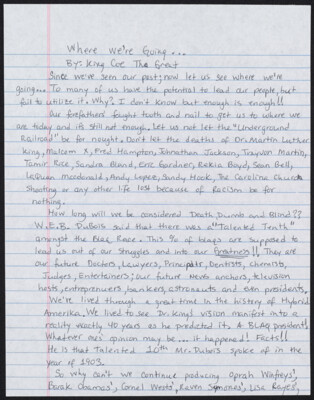 Where We're Going...
By: King Coe The Great
Since we've seen our past; now let us see where we're
going... To many of us have the potential to lead our people, but
fail to utilize it. Why? I don't know but enough is enough!!
Our forefathers fought tooth and nail to get us to where we
are today and it's still not enough. Let us not let the "Underground
Railroad" be for nought. Don't let the deaths of Dr. Martin Luther
King, Malcom X, Fred Hampton, Johnathan Jackson, Trayvon Martin,
Tamir Rice, Sandra Bland, Eric Gardner, Rekia Boyd, Sean Bell,
LaQuan mcdonald, Andy Lopez, Sandy Hook, The Carolina Church
Shooting or any other life lost because of Racism be for
nothing.
How long will we be considered Death, Dumb and Blind??
W.E.B. DuBois said that there was a "Talented Tenth"
amongst the Blaq Race. This % of blaqs are supposed to
lead us out of our struggles and into our Greatness!! They are
our future Doctors, Lawyers, Principals, Dentists, Chemists,
Judges, Entertainers; our future News anchors, television
hosts, entrepreneurs, bankers, astronauts and even presidents.
We've lived through a great time in the history of Hybrid
Amerika. We lived to see Dr. King's vision manifest into a
reality exactly 40 years as he predicted it. A BLAQ president!
Whatever one's opinion may be... it happened! Facts!!
He is that Talented 10th Mr. DuBois spoke of in the
year of 1903.
So why can't we continue producing Oprah Winfreys',
Barak Obamas', Cornel Wests', Raven Symones', Lisa Rayes',